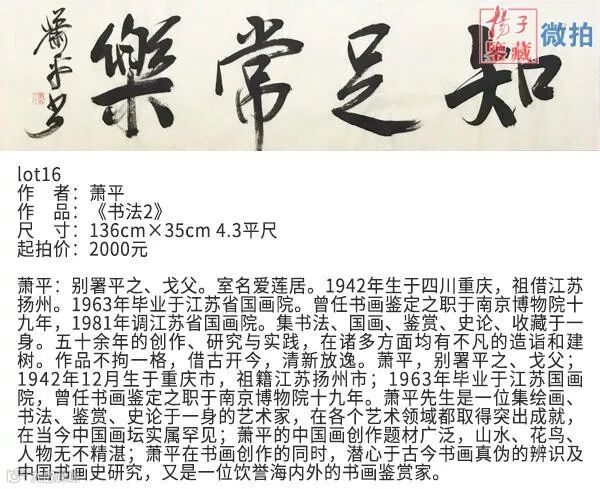 知足常樂
萧平书
揚子
鑒藏
微拍
lot16
作 者：萧平
作 品：《书法2》
尺 寸：136cm×35cm 4.3平尺
起拍价：2000元
萧平：别署平之、戈父。室名爱莲居。1942年生于四川重庆，祖借江苏
扬州。1963年毕业于江苏省国画院。曾任书画鉴定之职于南京博物院十
九年，1981年调江苏省国画院。集书法、国画、鉴赏、史论、收藏于一
身。五十余年的创作、研究与实践，在诸多方面均有不凡的造诣和建
树。作品不拘一格，借古开今，清新放逸。萧平，别署平之、戈父；
1942年12月生于重庆市，祖籍江苏扬州市；1963年毕业于江苏国画
院，曾任书画鉴定之职于南京博物院十九年。萧平先生是一位集绘画、
书法、鉴赏、史论于一身的艺术家，在各个艺术领域都取得突出成就，
在当今中国画坛实属罕见；萧平的中国画创作题材广泛，山水、花鸟、
人物无不精湛；萧平在书画创作的同时，潜心于古今书画真伪的辨识及
中国书画史研究，又是一位饮誉海内外的书画鉴赏家。